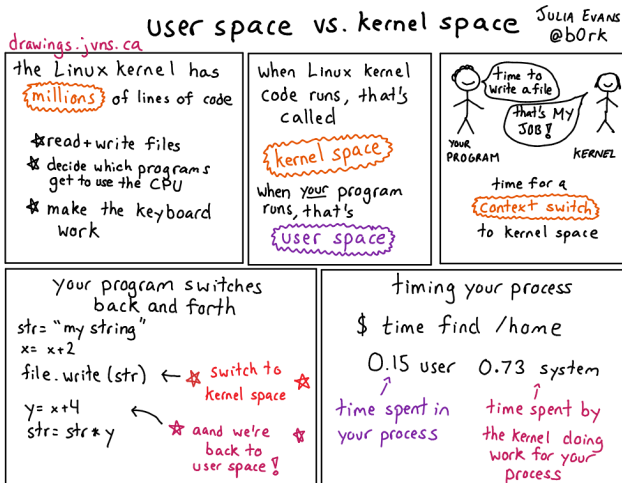 user space vs. kernel space
JULIA EVANS
@b0rk
drawings.jvns.ca
the Linux kernel has
millions of lines of code
read+write files
decide which programs
get to use the CPU
make the keyboard
work
when Linux kernel
code runs, that's
called
kernel space
when your program
runs, that's
user space
time to
write a file
that's MY
JOB!
YOUR
PROGRAM
KERNEL
time for a
context switch
to kernel space
your program switches
back and forth
str= "my string"
x= x+2
file.write(str)
switch to
kernel space
y= x+4
str= str*y
aand we're
back to
user space!
timing your process
$ time find /home
0.15 user 0.73 system
time spent in
your process
time spent by
the kernel doing
work for your
process